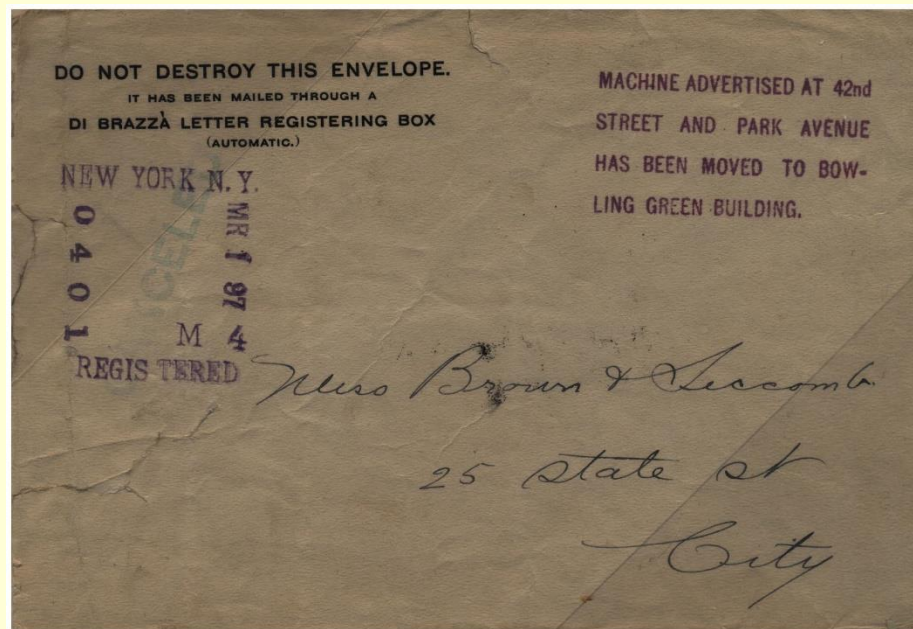 DO NOT DESTROY THIS ENVELOPE.
IT HAS BEEN MAILED THROUGH A
DI BRAZZÀ LETTER REGISTERING BOX
(AUTOMATIC.)
MACHINE ADVERTISED AT 42nd
STREET AND PARK AVENUE
HAS BEEN MOVED TO BOW-
LING GREEN BUILDING.
NEW YORK N. Y.
0401
MR 1 97 4
M
REGISTERED
Brown &
25 State St
City